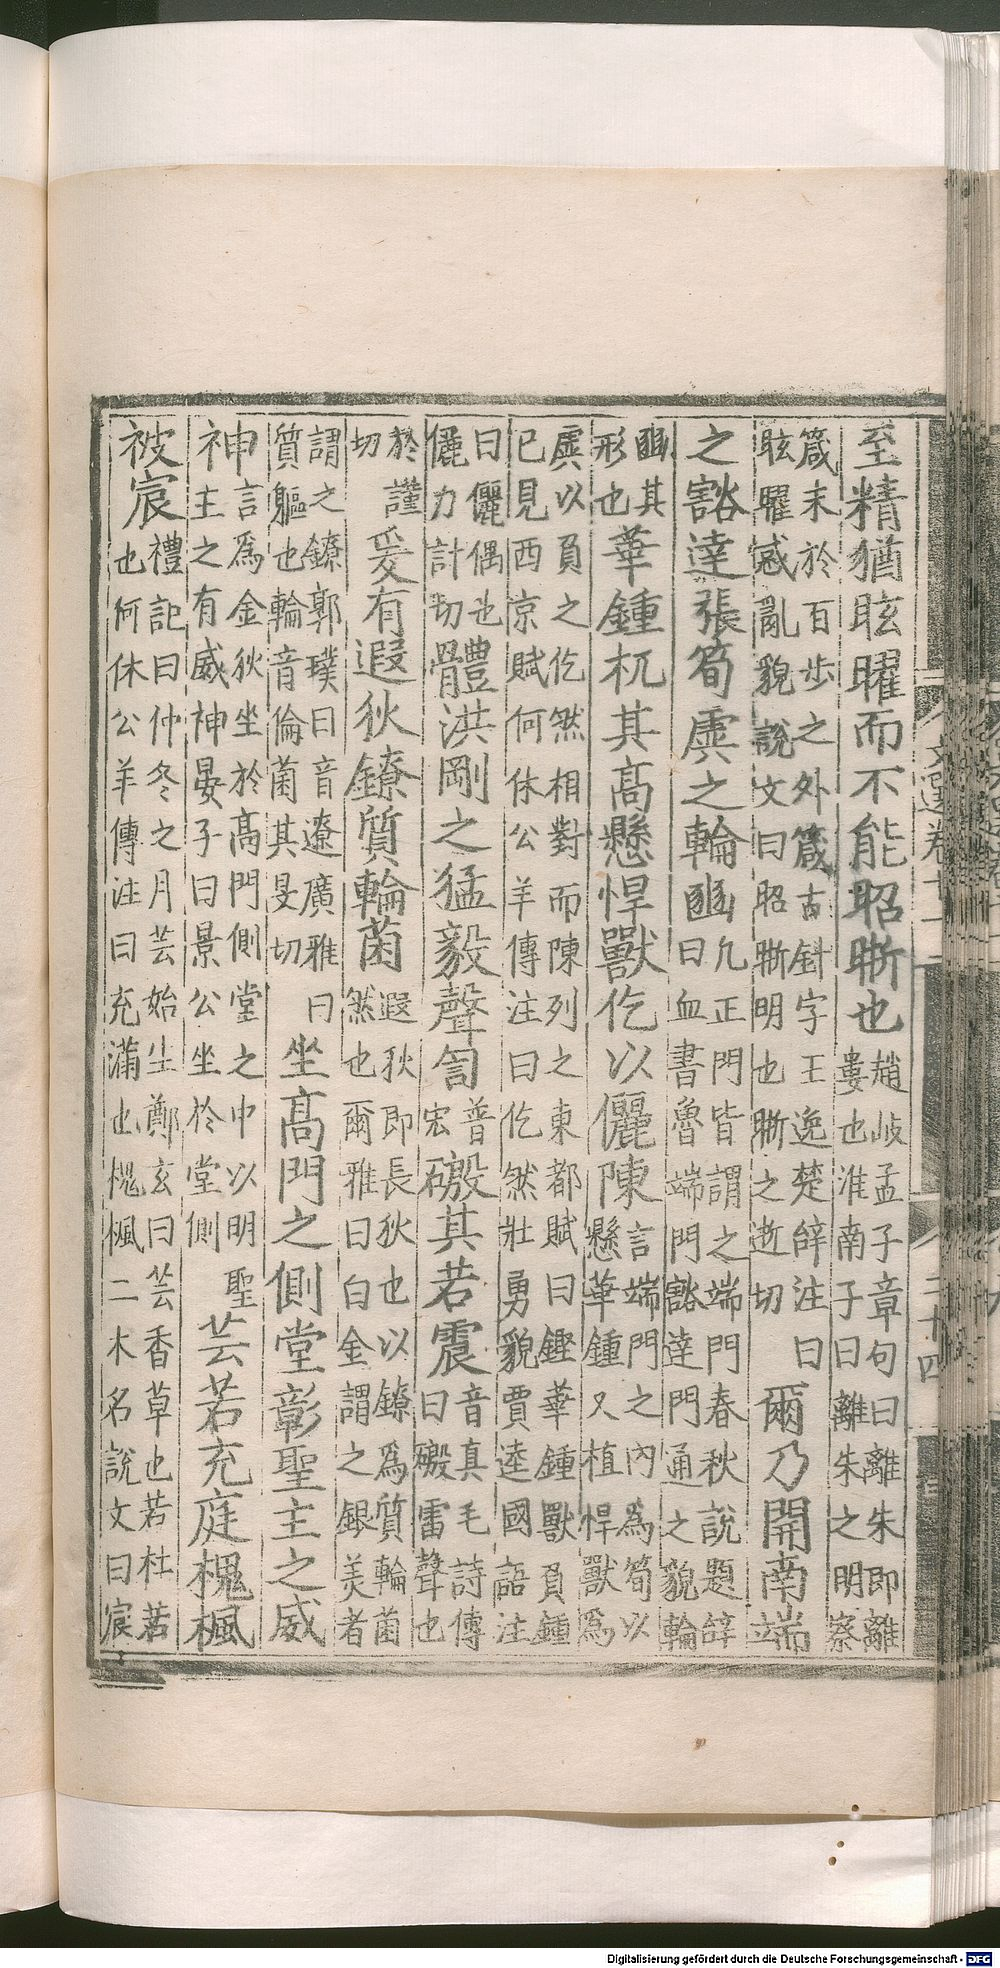 文選卷十一
二十四
至精猶眩曜而不能昭晣也趙岐孟子章句曰離朱即離
婁也淮南子曰離朱之明察
箴末於百步之外箴古針字王逸楚辭注曰
眩曜惑亂貌說文曰昭晣明也晣之逝切爾乃開南端
之豁達張筍虡之輪豳凡正門皆謂之端門春秋說題辭
曰血書魯端門豁達門通之貌輪
豳其
形也華鍾杌其高懸悍獸仡以儷陳言端門之內為筍以
懸華鍾又植悍獸為
虡以負之仡然相對而陳列之東都賦曰鏗華鍾獸負鍾
已見西京賦何休公羊傳注曰仡然壯勇貌賈逵國語注
曰儷偶也
儷力計切體洪剛之猛毅聲訇普
宏礮其若震音真毛詩傳
曰礮雷聲也
於謹
切爰有遐狄鐐質輪菌遐狄即長狄也以鐐為質輪菌
然也爾雅曰白金謂之銀美者
謂之鐐郭璞曰音遼廣雅曰
質軀也輪音倫菌其旻切坐高門之側堂彰聖主之威
神言為金狄坐於高門側堂之中以明聖
主之有威神晏子曰景公坐於堂側芸若充庭槐楓
被宸禮記曰仲冬之月芸始生鄭玄曰芸香草也若杜若
也何休公羊傳注曰充滿也槐楓二木名說文曰宸
Digitalisierung gefördert durch die Deutsche Forschungsgemeinschaft - DFG